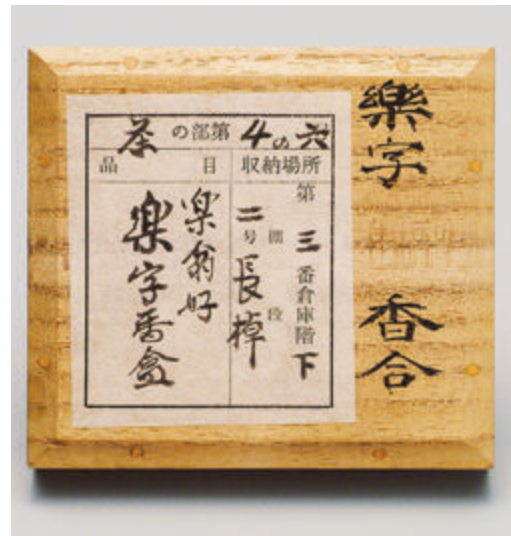 樂字 香合
茶の部第4の六
品目
収納場所
第三番倉庫階下
二号棚長棹段
楽翁好
楽字香盒